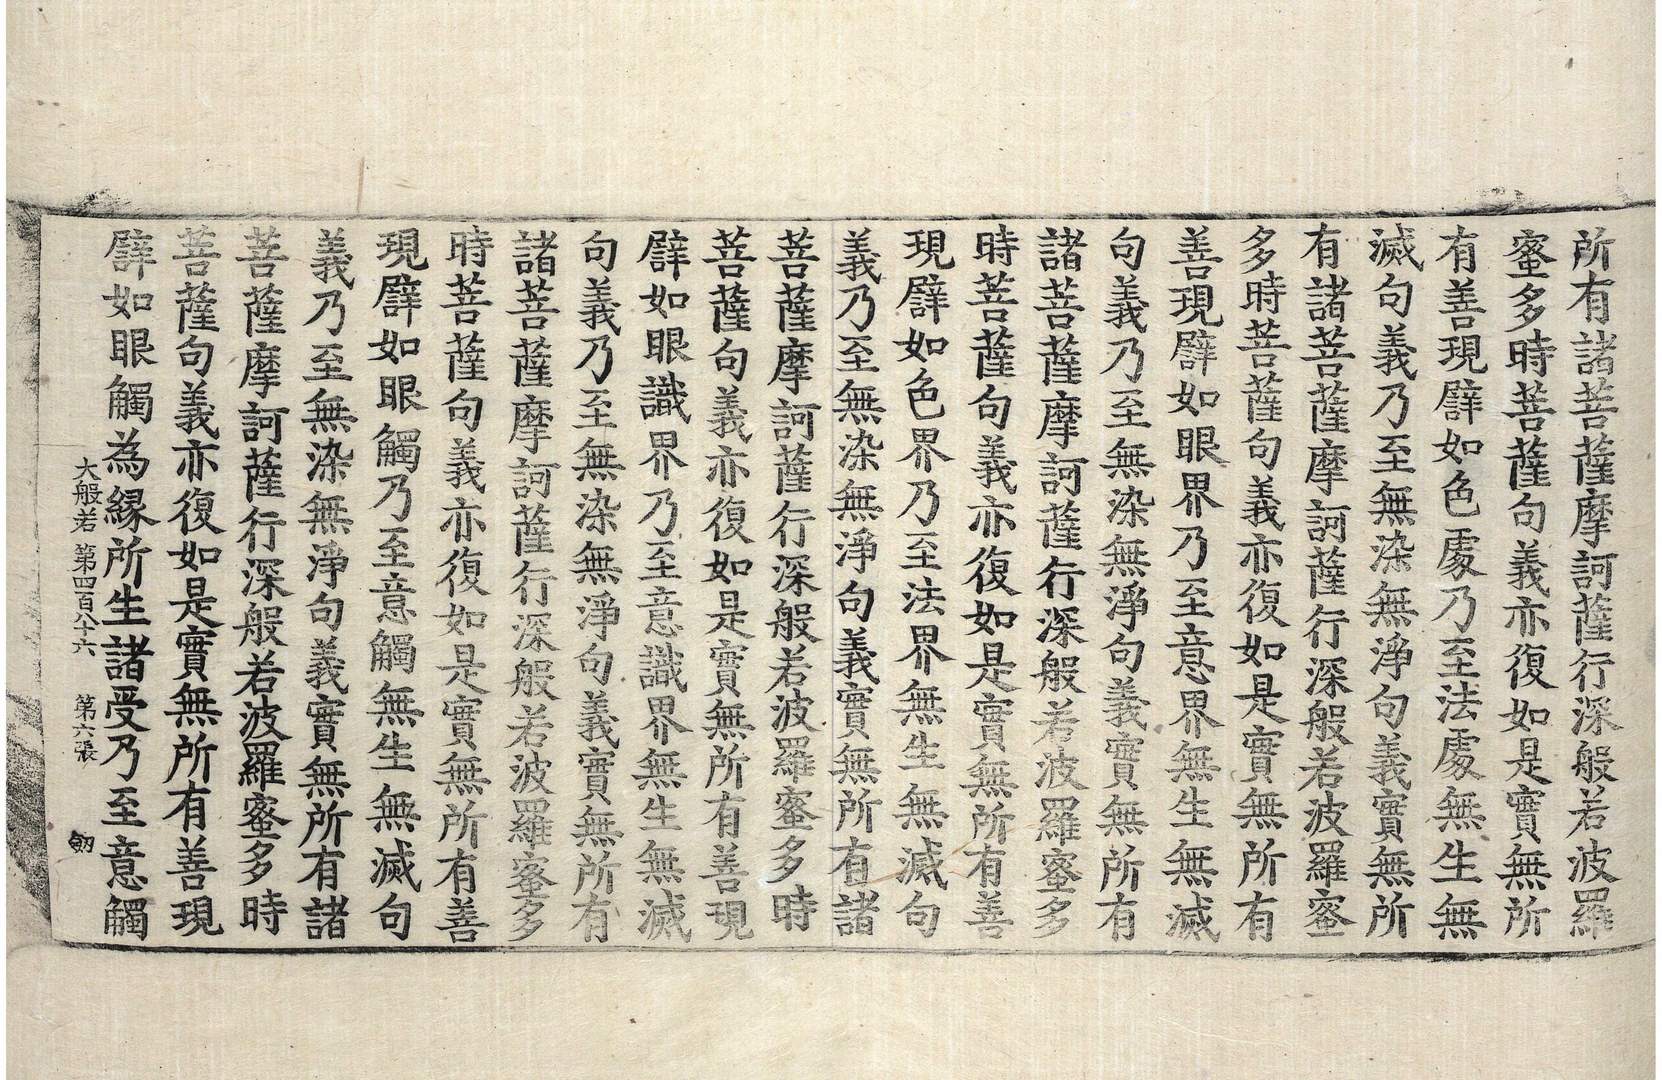 所有諸菩薩摩訶薩行深般若波羅
蜜多時菩薩句義亦復如是實無所
有善現譬如色處乃至法處無生無
滅句義乃至無染無淨句義實無所
有諸菩薩摩訶薩行深般若波羅蜜
多時菩薩句義亦復如是實無所有
善現譬如眼界乃至意界無生無滅
句義乃至無染無淨句義實無所有
諸菩薩摩訶薩行深般若波羅蜜多
時菩薩句義亦復如是實無所有善
現譬如色界乃至法界無生無滅句
義乃至無染無淨句義實無所有諸
菩薩摩訶薩行深般若波羅蜜多時
菩薩句義亦復如是實無所有善現
譬如眼識界乃至意識界無生無滅
句義乃至無染無淨句義實無所有
諸菩薩摩訶薩行深般若波羅蜜多
時菩薩句義亦復如是實無所有善
現譬如眼觸乃至意觸無生無滅句
義乃至無染無淨句義實無所有諸
菩薩摩訶薩行深般若波羅蜜多時
菩薩句義亦復如是實無所有善現
譬如眼觸為緣所生諸受乃至意觸
大般若 第四百八十六 第六張 釰